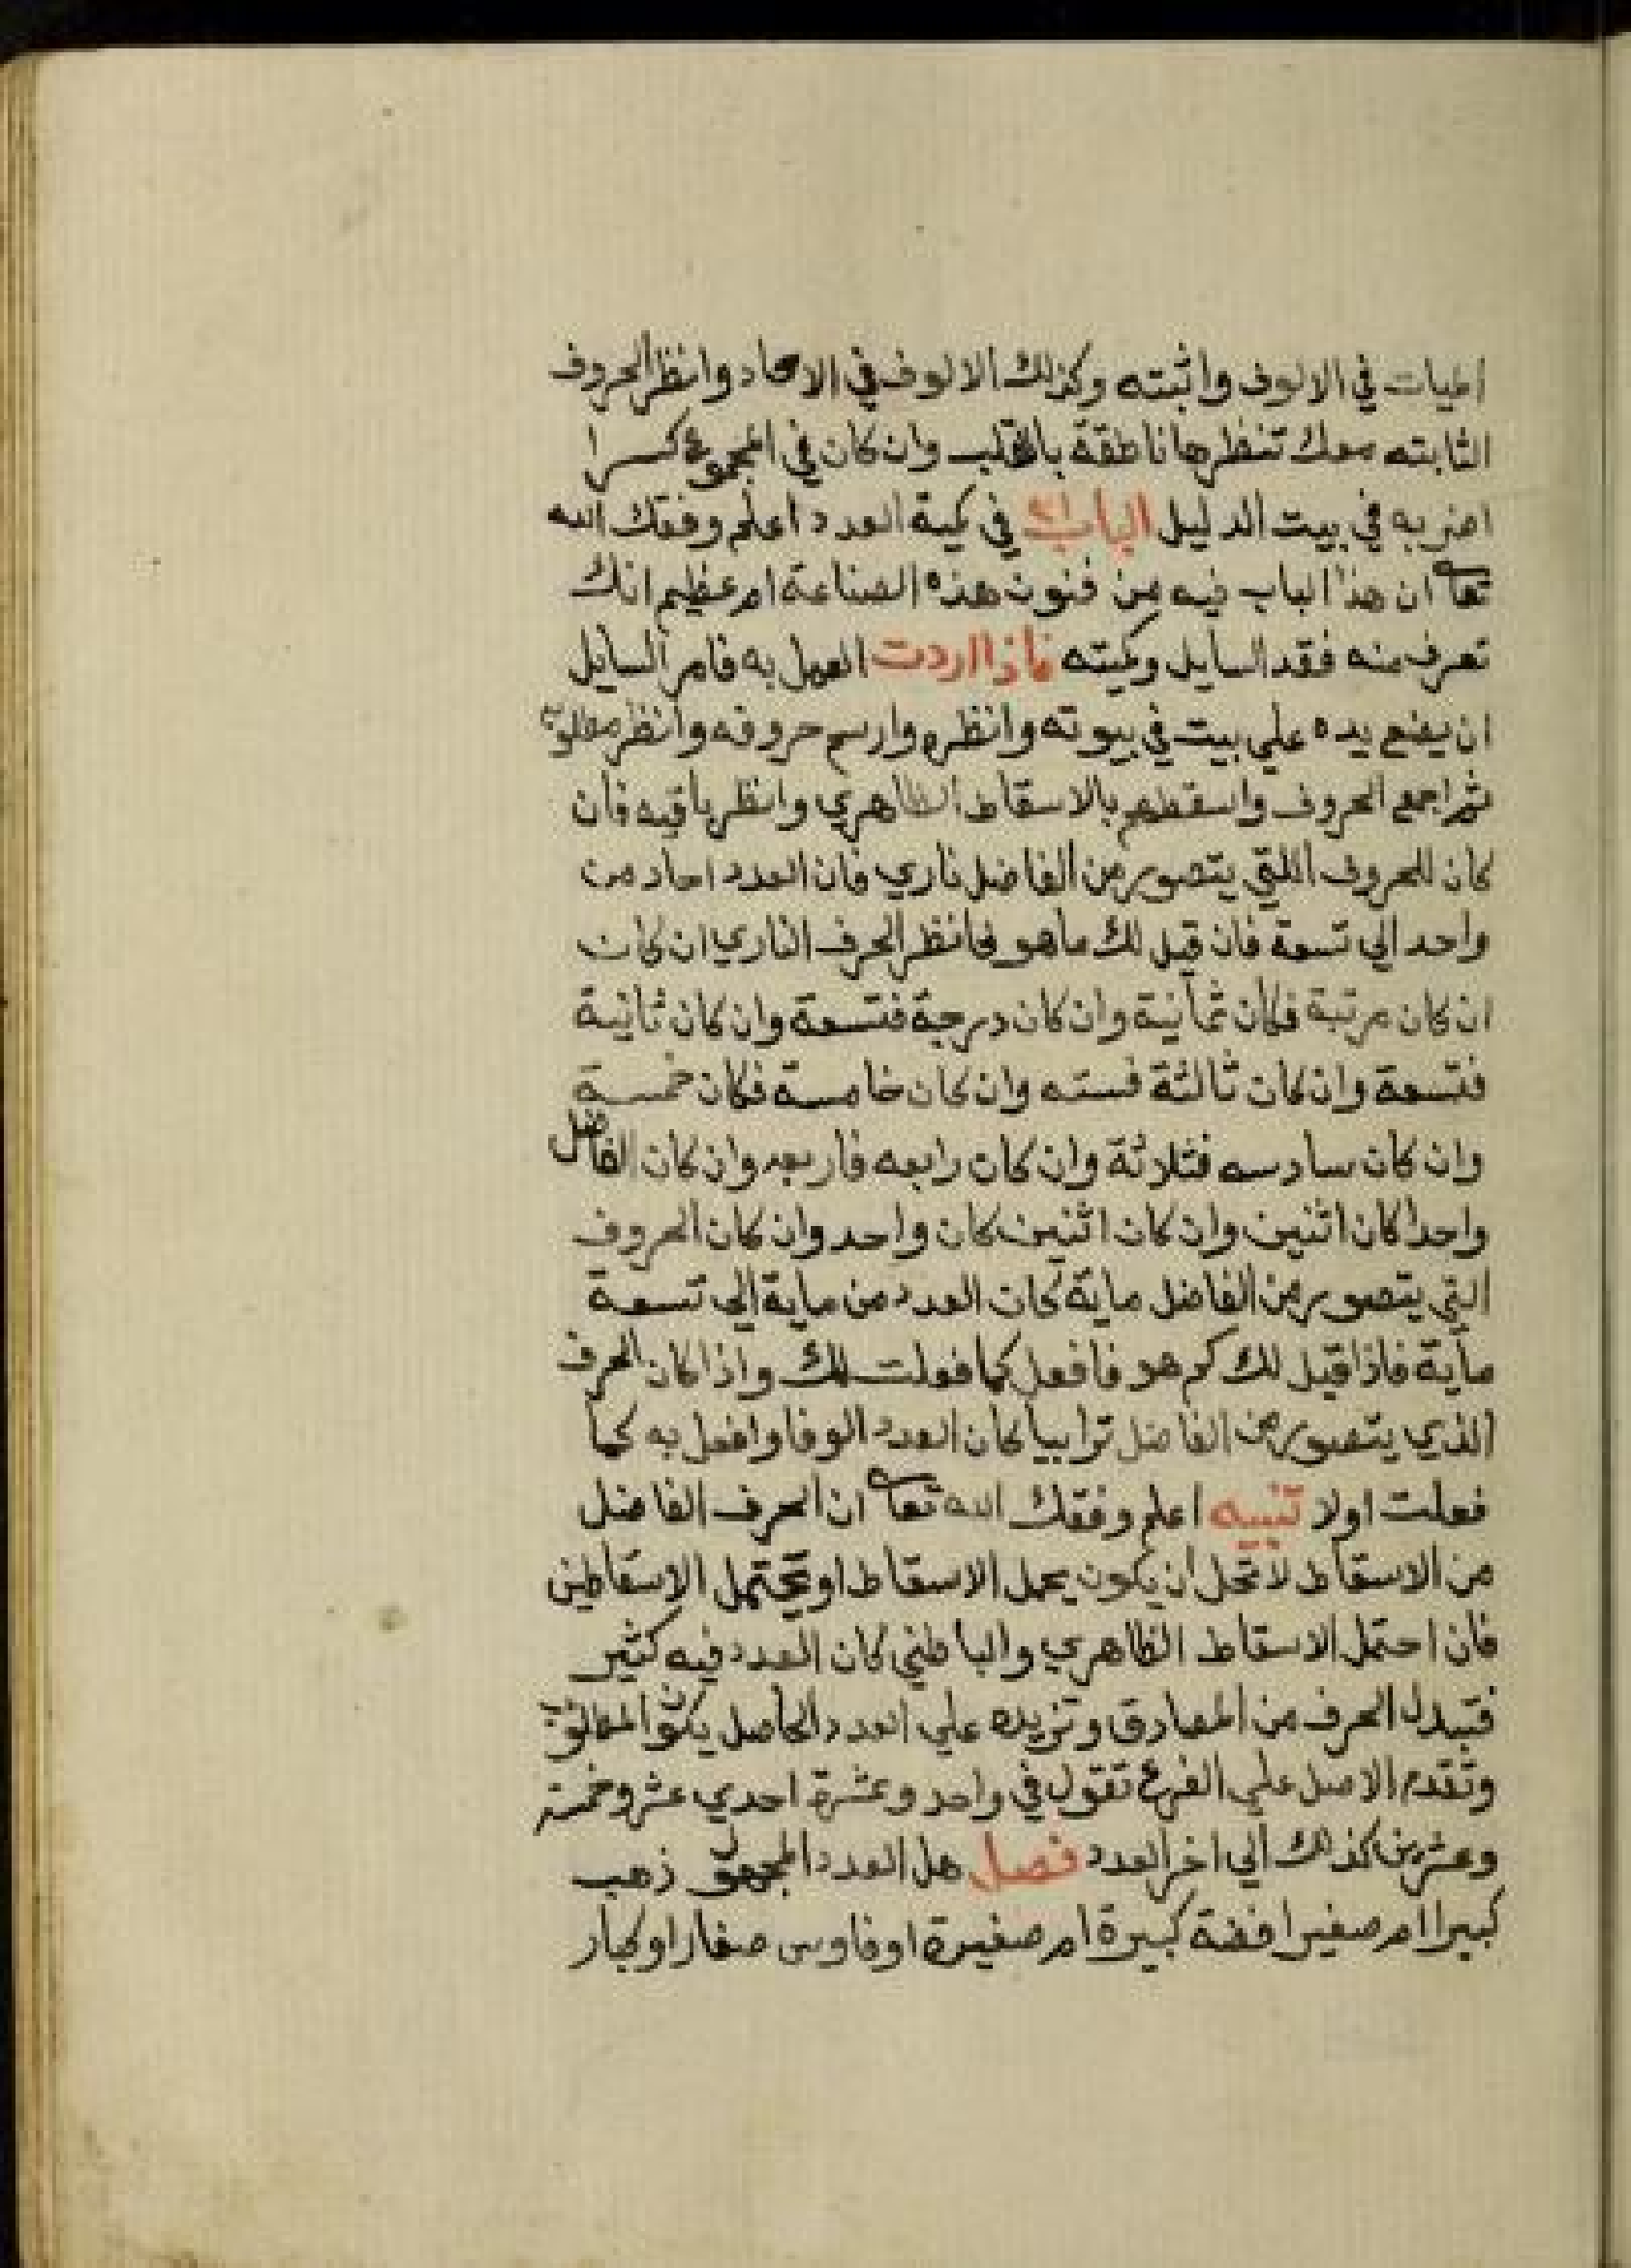 المیات في الالوف واثبته وكذلك الالوف في الاحاد وانظر الحروف
الثابته معك تنظرها ناطقة بالقلب وان كان في المجموع كسرا
اضربه في بيت الدليل الباب في كمية العدد اعلم وفقك الله
تعا ان هذا الباب فيه من فنون هذه الصناعة امر عظيم انك
تعرف منه فقد السايل وكميته فاذا اردت العمل به فامر السايل
ان يضع يده علي بيت في بيوته وانظره وارسم حروفه وانظر مطلوبه
ثم اجمع الحروف واسقطهم بالاسقاط الظاهري وانظر باقيه فان
كان للحروف اللتي يتصور من الفاضل ناري فان العدد احاد من
واحد الي تسعة فان قيل لك ماهو فانظر الحرف الناري ان كان
ان كان مرتبة فكان ثمانية وان كان درجة فتسعة وان كان ثانية
فتسعة وان كان ثالثة فسته وان كان خامسة فكان خمسة
وان كان سادسه فثلاثة وان كان رابعه فاربعه وان كان الفاضل
واحدا كان اثنين وان كان اثنين كان واحد وان كان الحروف
التي يتصور من الفاضل ماية كان العدد من ماية الي تسعة
ماية فاذا قيل لك كم هو فافعل كما فعلت لك واذا كان الحرف
الذي يتصور من الفاضل ترابيا كان العدد الوفا وافعل به كما
فعلت اولا تنبيه اعلم وفقك الله تعا ان الحرف الفاضل
من الاسقاط لا تخل ان يكون يحمل الاسقاط او يحتمل الاسقاطين
فان احتمل الاسقاط الظاهري والباطني كان العدد فيه كثير
فتبدل الحرف من المصادق وتزيده علي العدد الحاصل يكون المطلوب
وتقدم الاصل علي الفرع تقول في واحد وعشرة احدي عشر وخمسة
وعشرين كذلك الي اخر العدد فصل هل العدد المجموع ذهب
كبيرا ام صغيرا فضة كبيرة ام صغيرة او فلوس صغار او كبار